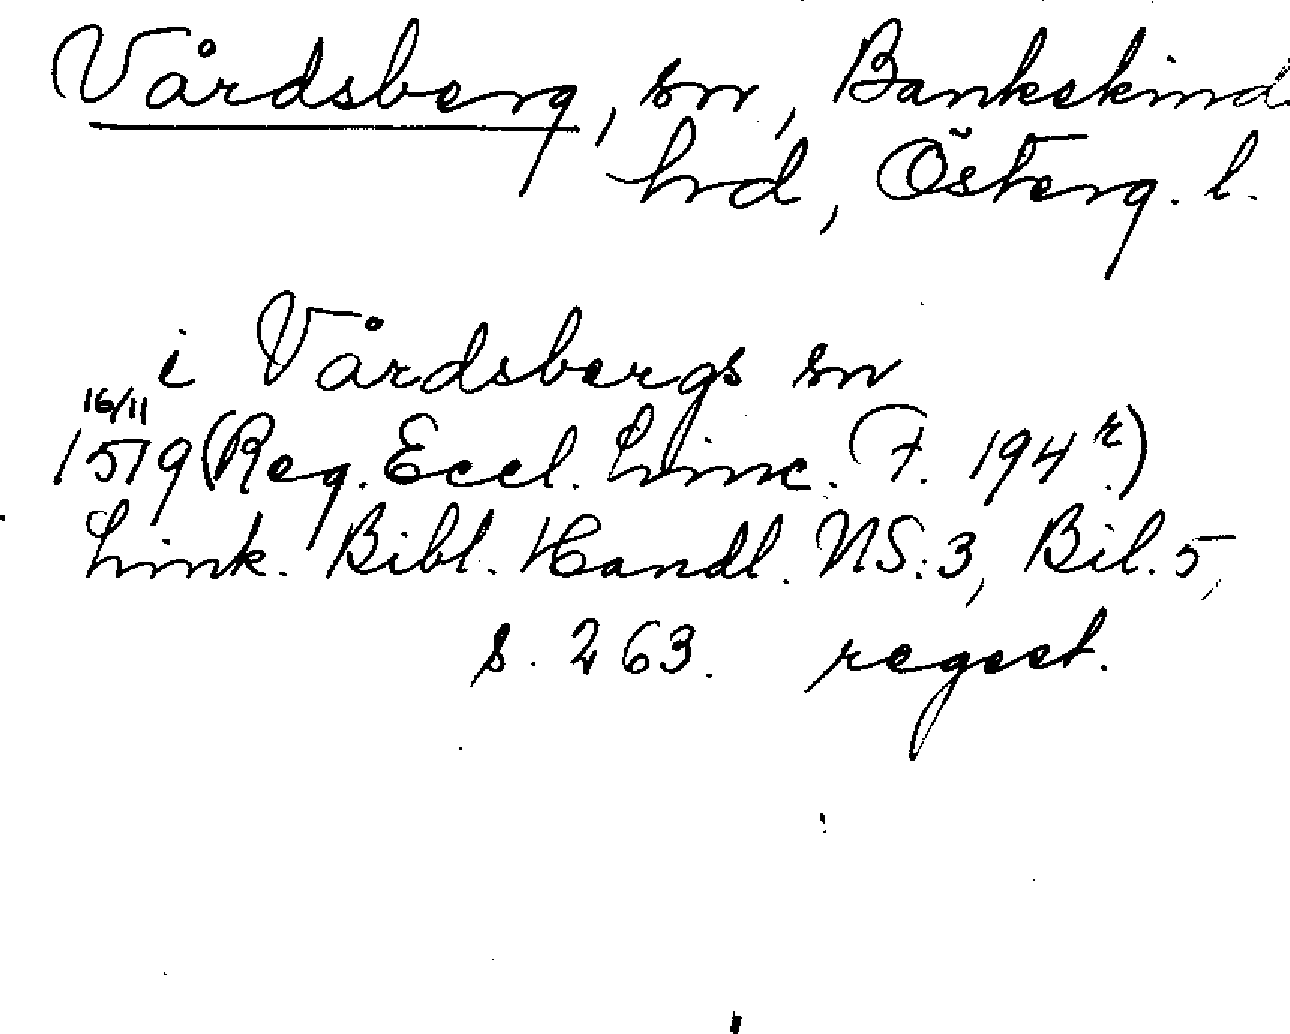 Vårdsberg, sn, Bankekind
hrd, Österg. l.
i Vårdsbergs sn
16/11
1519 (Reg. Eccl. Linc. F. 194 r)
Link. Bibl. Handl. NS. 3, Bil. 5,
s. 263. regest.